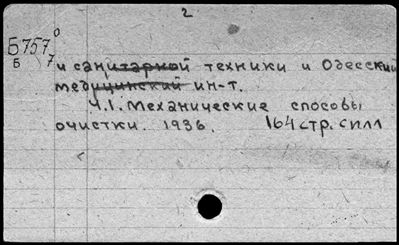 2
Б757⁰
Б 7
и санитарной техники и Одесский
медицинский ин-т.
Ч.1. Механические способы
очистки. 1936. 164 стр. с илл